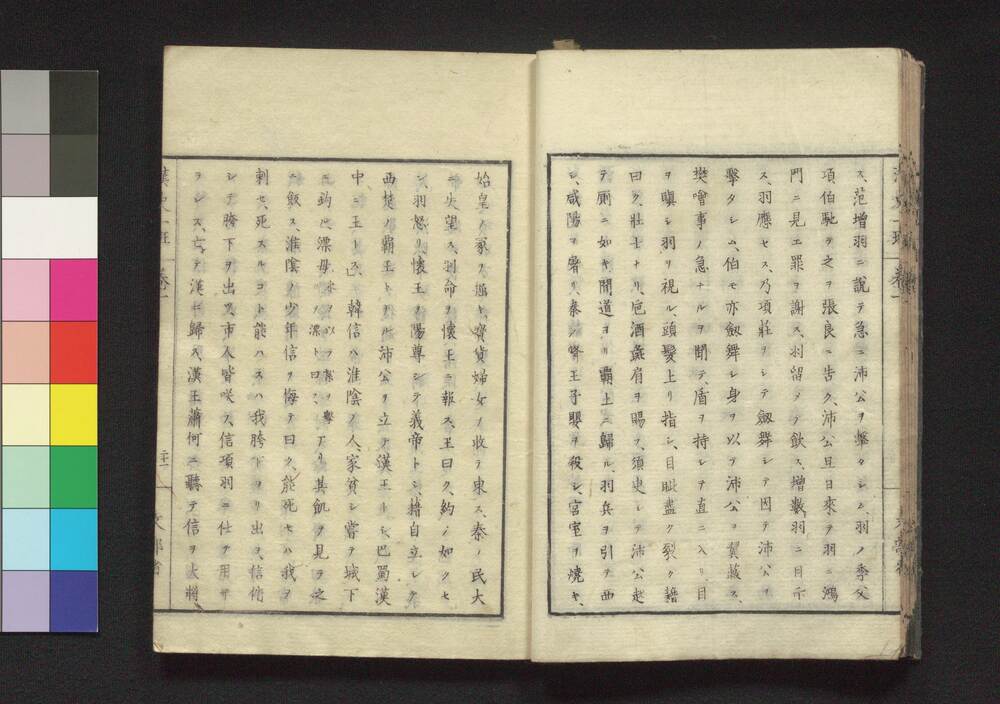 ス、范増羽ニ說テ急ニ沛公ヲ擊タシム、羽ノ季父
項伯馳テ之ヲ張良ニ告ク、沛公旦日來テ羽ニ鴻
門ニ見エ罪ヲ謝ス、羽留メテ飲ス、增數羽ニ目示
ス、羽應セス、乃項莊ヲシテ劔舞シテ因テ沛公ヲ
擊タシム、伯モ亦劔舞シ身ヲ以テ沛公ヲ翼蔽ス、
樊噲事ノ急ナルヲ聞テ、盾ヲ持シテ直ニ入リ、目
ヲ瞋シ羽ヲ視ル、頭髮上リ指シ、目眦盡ク裂ク、籍
曰ク、壯士ナリ、巵酒彘肩ヲ賜フ、須臾シテ沛公起
テ厠ニ如キ間道ヨリ覇上ニ歸ル、羽兵ヲ引テ西
シ、咸陽ヲ屠リ、秦ノ降王子嬰ヲ殺シ、宮室ヲ燒キ、
始皇ノ冢ヲ掘キ、寶貨婦女ヲ收テ東ス、秦ノ民大
ニ失望ス、羽命ヲ懷王ニ報ス、王曰ク、約ノ如クセ
ン、羽怒リ懷王ヲ陽尊シテ義帝トシ、擅自立シテ
西楚ノ覇王トナル、沛公ヲ立テ漢王トシ、巴蜀漢
中ニ王トス、韓信ハ淮陰ノ人、家貧シ嘗テ城下
ニ釣ス、漂母水ヲ以テ絮ヲ擊ヲ漂ト曰フ、アリ其飢ヲ見テ之
ニ飯ス、淮陰ノ少年信ヲ侮テ曰ク、能死セハ我ヲ
刺セ、死スルコト能ハスハ我胯下ヨリ出ヨ、信俯
シテ胯下ヲ出ツ、市人皆咲フ、信項羽ニ仕テ用ヰ
ラレス、亡テ漢ニ歸ス、漢王蕭何ニ聽テ信ヲ大將
卷一